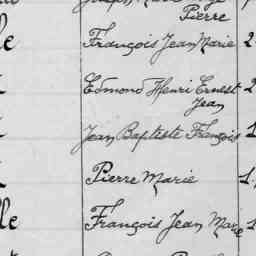 Pierre
lle François Jean Marie 2
Edmond Henri Ernest 2
Jean
Jean Baptiste François 1
Pierre Marie 1
lle François Jean Marie 1